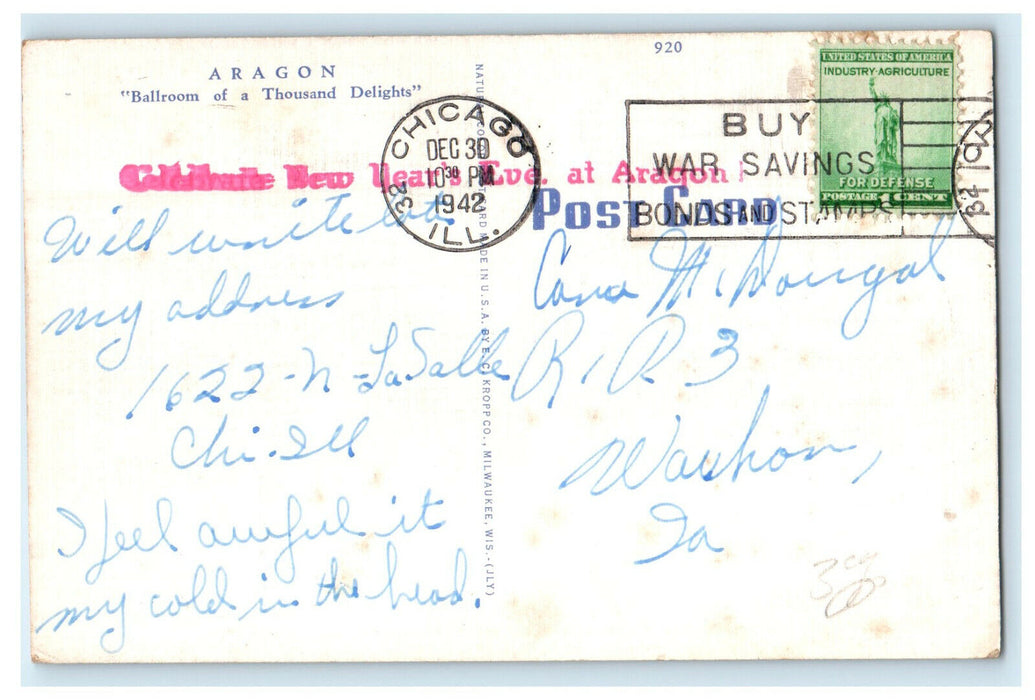 920
ARAGON
"Ballroom of a Thousand Delights"
Celebrate New Year's Eve. at Aragon
CHICAGO
DEC 30
10 30 PM
1942
ILL.
32
BUY
WAR SAVINGS
BONDS AND STAMPS
UNITED STATES OF AMERICA
INDUSTRY·AGRICULTURE
FOR DEFENSE
POSTAGE 1 CENT
POST CARD
Will write
my address
1622-N-LaSalle
Chi. Ill
I feel awful it
my cold in the head.
NATURAL COLOR POST CARD MADE IN U.S.A. BY E. C. KROPP CO., MILWAUKEE, WIS.-(JLY)
McDougal
R. R 3
Waukon,
Ia